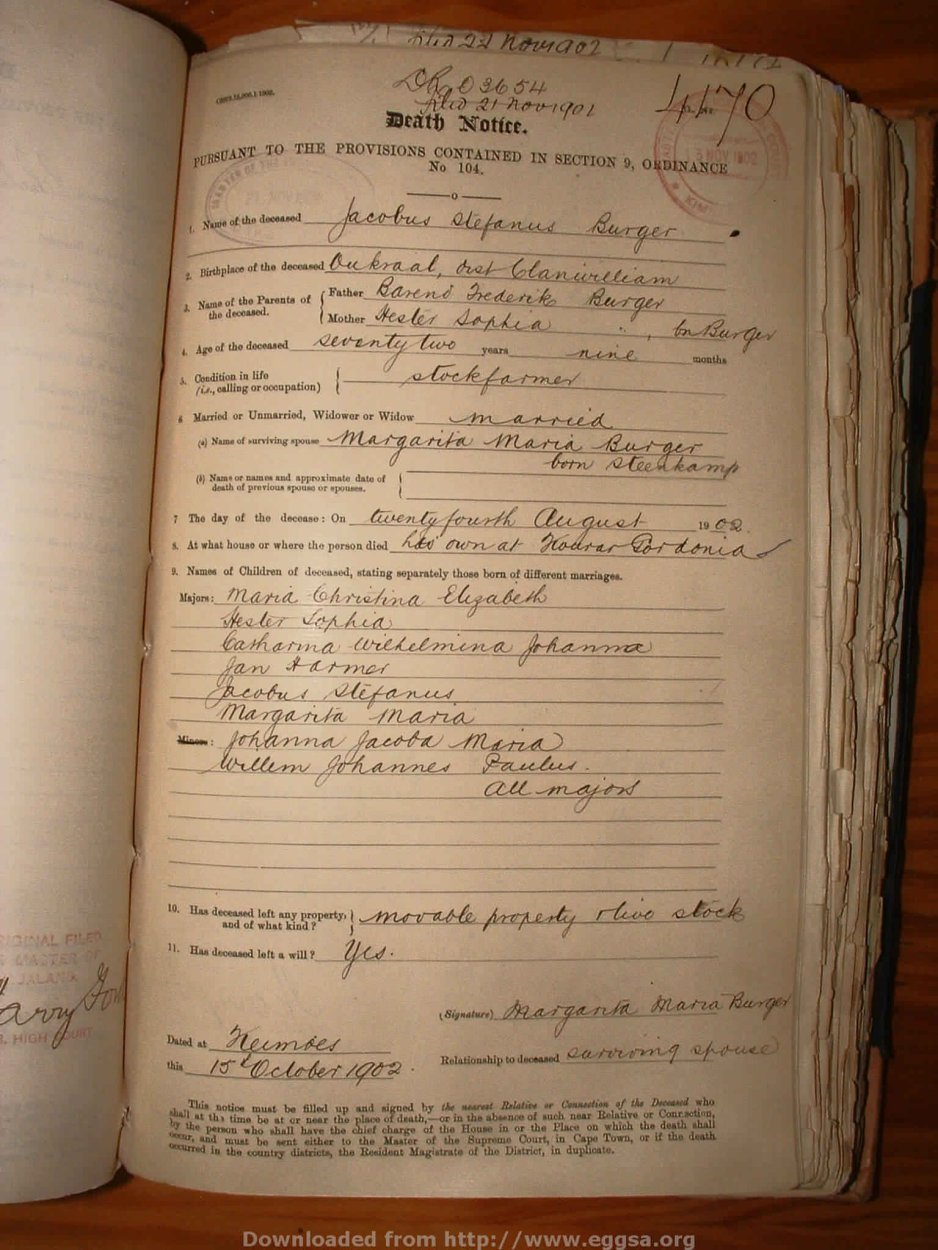 filed 22 Nov 1902
DR 03654
filed 21 Nov 1901
4170
Death Notice.
PURSUANT TO THE PROVISIONS CONTAINED IN SECTION 9, ORDINANCE
No 104.
1. Name of the deceased Jacobus Stefanus Burger
2. Birthplace of the deceased Oukraal, dist Clanwilliam
3. Name of the Parents of the deceased. Father Barend Frederik Burger
Mother Hester Sophia " , bn Burger
4. Age of the deceased seventy two years nine months
5. Condition in life (i.e., calling or occupation) stockfarmer
6 Married or Unmarried, Widower or Widow married
(a) Name of surviving spouse Margarita Maria Burger
born Steenkamp
(b) Name or names and approximate date of
death of previous spouse or spouses.
7 The day of the decease: On twentyfourth August 1902.
8. At what house or where the person died his own at Gordonia
9. Names of Children of deceased, stating separately those born of different marriages.
Majors: Maria Christina Elizabeth
Hester Sophia
Catharina Wilhelmina Johanna
Jan Harmer
Jacobus Stefanus
Margarita Maria
Minors: Johanna Jacoba Maria
Willem Johannes Paulus.
All majors
10. Has deceased left any property, and of what kind? movable property & live stock
11. Has deceased left a will? Yes.
(Signature) Margarita Maria Burger
Dated at Keimoes
Relationship to deceased surviving spouse
this 15th October 1902.
This notice must be filled up and signed by the nearest Relative or Connection of the Deceased who
shall at the time be at or near the place of death,—or in the absence of such near Relative or Connection,
by the person who shall have the chief charge of the House in or the Place on which the death shall
occur, and must be sent either to the Master of the Supreme Court, in Cape Town, or if the death
occurred in the country districts, the Resident Magistrate of the District, in duplicate.
ORIGINAL FILED
MASTER OF
HIGH COURT
Downloaded from http://www.eggsa.org